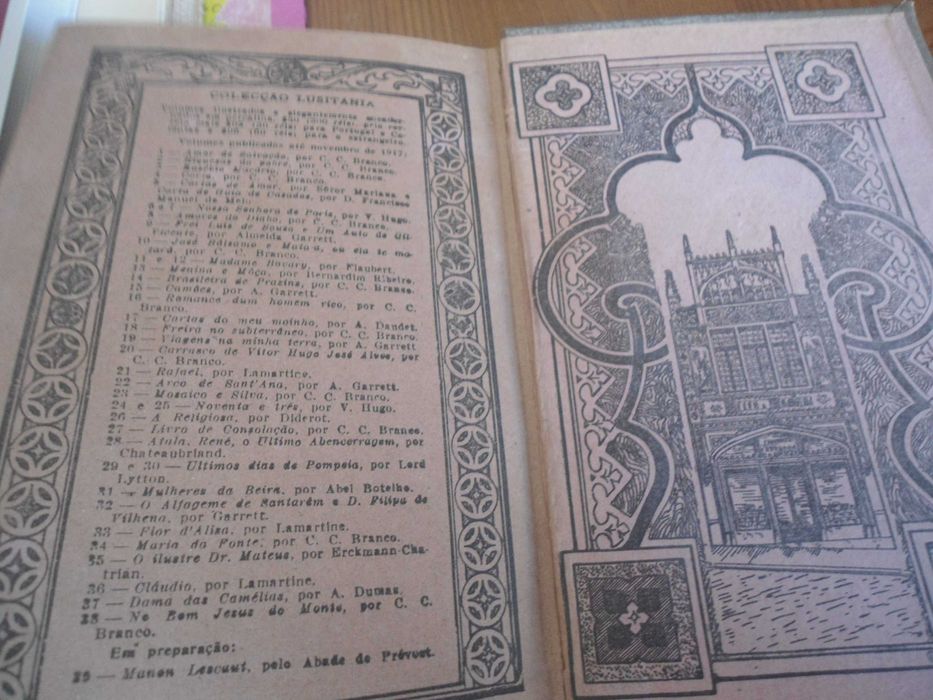 COLECÇÃO LUSITANIA
Volumes ilustrados e elegantemente encader-
para Portugal e Co-
para o extrangeiro.
Volumes publicados até novembro de 1917:
1 — Amor de Salvação, por C. C. Branco.
por C. C. Branco.
por C. C. Branco.
4 — por C. C. Branco.
5 — Cartas de Amor, por Sóror Mariana e
Carta de Guia de Casados, por D. Francisco
Manuel de Melo.
6 e 7 — Nossa Senhora de Paris, por V. Hugo.
8 — Amores do Diabo, por C. C. Branco.
9 — Frei Luis de Sousa e Um Auto de Gil
Vicente, por Almeida Garrett.
10 — José Bálsamo e Mata-a, ou ela te ma-
tará, por C. C. Branco.
11 e 12 — Madame Bovary, por Flaubert.
13 — Menina e Môça, por Bernardim Ribeiro.
14 — Brasileira de Prazins, por C. C. Branco.
15 — Camões, por A. Garrett.
16 — Romance dum homem rico, por C. C.
Branco.
17 — Cartas do meu moinho, por A. Daudet.
18 — Freira no subterrâneo, por C. C. Branco.
19 — Viagens na minha terra, por A. Garrett
20 — Carrasco de Vitor Hugo José Alves, por
C. C. Branco.
21 — Rafael, por Lamartine.
22 — Arco de Sant'Ana, por A. Garrett.
23 — Mosaico e Silva, por C. C. Branco.
24 e 25 — Noventa e três, por V. Hugo.
26 — A Religiosa, por Diderot.
27 — Livro de Consolação, por C. C. Branco.
28 — Atala, René, o Ultimo Abencerragem, por
Chateaubriand.
29 e 30 — Ultimos dias de Pompeia, por Lord
Lytton.
31 — Mulheres da Beira, por Abel Botelho.
32 — O Alfageme de Santarém e D. Filipa de
Vilhena, por Garrett.
33 — Flor d'Aliza, por Lamartine.
34 — Maria da Fonte, por C. C. Branco.
35 — O ilustre Dr. Mateus, por Erckmann-Cha-
trian.
36 — Cláudio, por Lamartine.
37 — Dama das Camélias, por A. Dumas.
38 — No Bom Jesus do Monte, por C. C.
Branco.
Em preparação:
39 — Manon Lescaut, pelo Abade de Prévost.